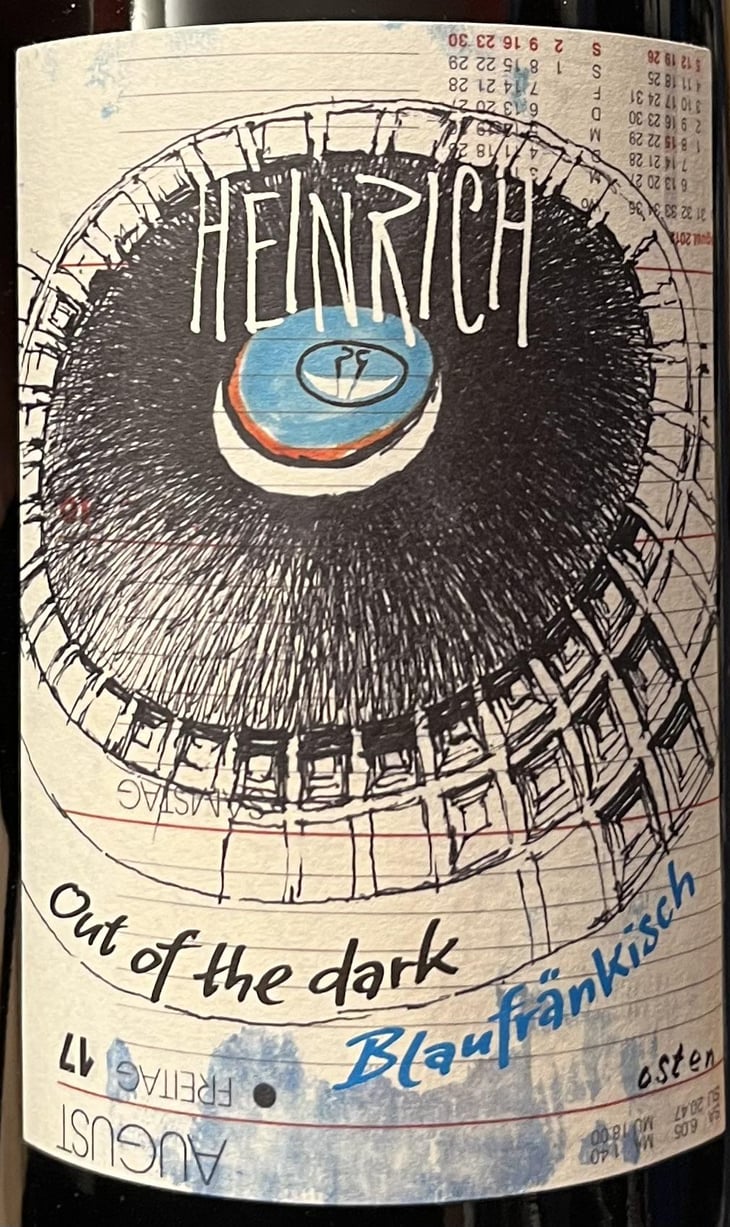 S 2 9 16 23 30
5 12 19 26
S 1 8 15 22 29
4 11 18 25
F 7 14 21 28
3 10 17 24 31
D 6 13 20 27
2 9 16 23 30
M
1 8 15 22 29
D 4 11 18 25
7 14 21 28
M 3
6 13 20 27
HEINRICH
SAMSTAG
Out of the dark
Blaufränkisch
osten
17 FREITAG
AUGUST
SU 20.47 MU 18.00
SA 6.05 MA 1.40